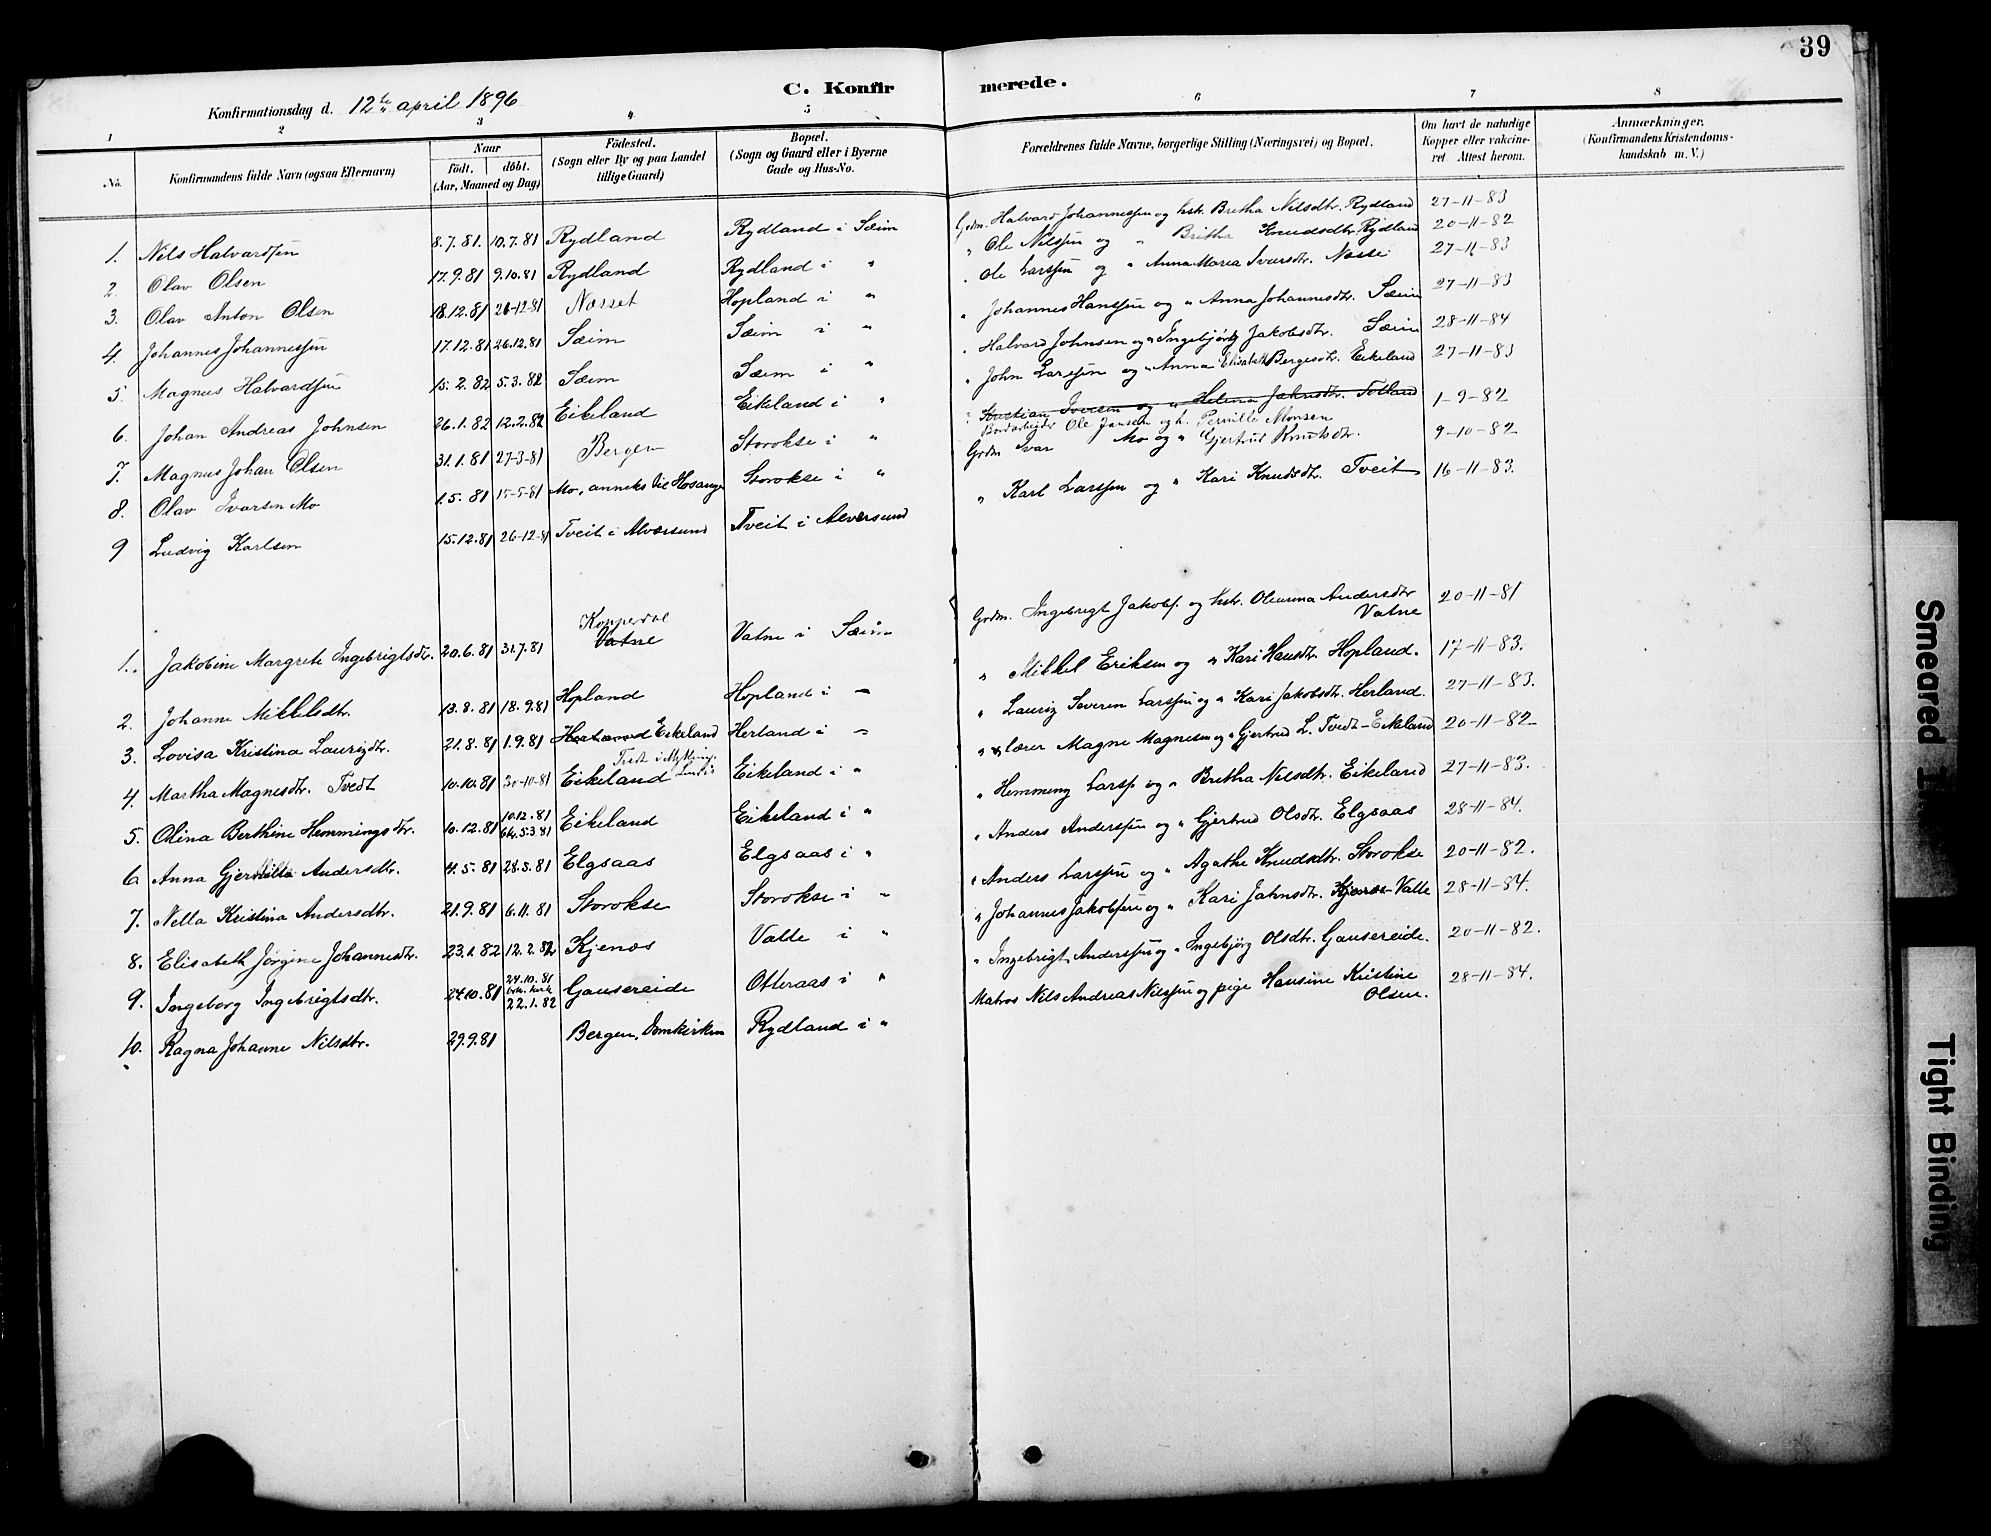 39
C. Konfirmerede.
Konfirmationsdag d. 12te april 1896
1 2 3 4 5 6 7 8
No.
Konfirmandens fulde Navn (ogsaa Efternavn)
Naar
födt. döbt.
(Aar, Maaned og Dag)
Födested.
(Sogn eller By og paa Landet
tillige Gaard)
Bopæl.
(Sogn og Gaard eller i Byerne
Gade og Hus-No.
Forældrenes fulde Navne, borgerlige Stilling (Næringsvei) og Bopæl.
Om havt de naturlige
Kopper eller vakcine-
ret. Attest herom.
Anmærkninger.
(Konfirmandens Kristendoms-
kundskab m. V.)
1. Nils Halvardsen 8.7.81. 10.7.81 Rydland Rydland i Sæim Grdm. Halvard Johannessen og hstr. Bretha Nilsdtr. Rydland 27-11-83
2. Olav Olsen 17.9.81 9.10.81 Rydland Rydland i " " Ole Nilssen og " Britha Knudsdtr. Rydland 20-11-82
3. Olav Anton Olsen 18.12.81 26-12-81 Næsset Hopland i " " Ole Larssen og " Anna Maria Iversdtr. Næsse 27-11-83
4. Johannes Johannessen 17.12.81 26.12.81 Sæim Sæim i " " Johannes Hanssen og " Anna Johannesdtr. Sæim 27-11-83
5. Magnus Halvardsen 15.2.82 5.3.82 Sæim Sæim i " " Halvard Johnsen og " Ingebjørg Jakobsdtr. Sæim 28-11-84
6. Johan Andreas Johnsen 26.1.82 12.2.82 Eikeland Eikeland i " " John Larssen og " Anna Elisabeth Bergesdtr. Eikeland 27-11-83
7. Magnus Johan Olsen 31.1.81 27-3-81 Bergen Storokse i " " Kristian Iversen og " Helena Jahnsdtr. Totland 1-9-82
Bordarbejder Ole Jansen og h. Pernille Monsen
8. Olav Ivarsen Mo 1.5.81 15-5-81 Mo, anneks til Hosanger Storokse i " Grdm Ivar Mo og " Gjertrud Knutsdtr. 9-10-82
9 Ludvig Karlsen 15.12.81 26-12-81 Tveit i Alversund Tveit i Alversund " Karl Larssen og " Kari Knudsdtr. Tveit 16-11-83.
1. Jakobine Margrete Ingebrigtsdtr. 20.6.81 31.7.81 Koppedal Vatne Vatne i Sæim Grdm. Ingebrigt Jakobs. og hstr. Oleanna Andersdtr Vatne 20-11-81
2. Johanne Mikkelsdtr. 13.8.81 18.9.81 Hopland Hopland i " " Mikkel Eriksen og " Kari Hansdtr. Hopland. 17-11-83.
3. Lovisa Kristina Laurizdtr. 21.8.81 1.9.81 Eikeland Herland i " " Lauriz Severin Larssen og " Kari Jakobsdtr. Herland. 27-11-83.
4. Martha Magnesdtr. Tvedt 10.10.81 30-10-81 Eikeland Eikeland i " " lærer Magne Magnesen og " Gjertrud L. Tvedt-Eikeland 20-11-82
5. Olina Berthine Hemmingsdtr. 10.12.81 10.12.81 Eikeland Eikeland i " " Hemming Larss. og " Bretha Nilsdtr. Eikeland 27-11-83.
6 Anna Andersdtr. 4.5.81 28.5.81 Elgsaas Elgsaas i " " Anders Anderssen og " Gjertrud Olsdtr. Elgsaas 28-11-84.
7. Nella Kristina Andersdtr. 21.9.81 6.11.81 Storokse Storokse i " " Anders Larssen og " Agathe Knudsdtr. Storokse 20-11-82.
8. Elisabeth Jørgine Johannesdtr. 23.1.82 12.2.82 Kjenæs Valle i " " Johannes Jakobssen og " Kari Jahnsdtr. Kjenæs-Valle 28-11-84.
9. Ingeborg Ingebrigtsdtr. 24.10.81 24.10.81 22.1.82 Gausereide Otteraas i " " Ingebrigt Anderssen og " Ingebjørg Olsdtr. Gausereide. 20-11-82.
10. Ragna Johanne Nilsdtr. 29.9.81 Bergen, Domkirken Rydland i " Matros Nils Andreas Nilssen og pige Hansine Kristine Olsen. 28-11-84.
Smeared
Tight Binding